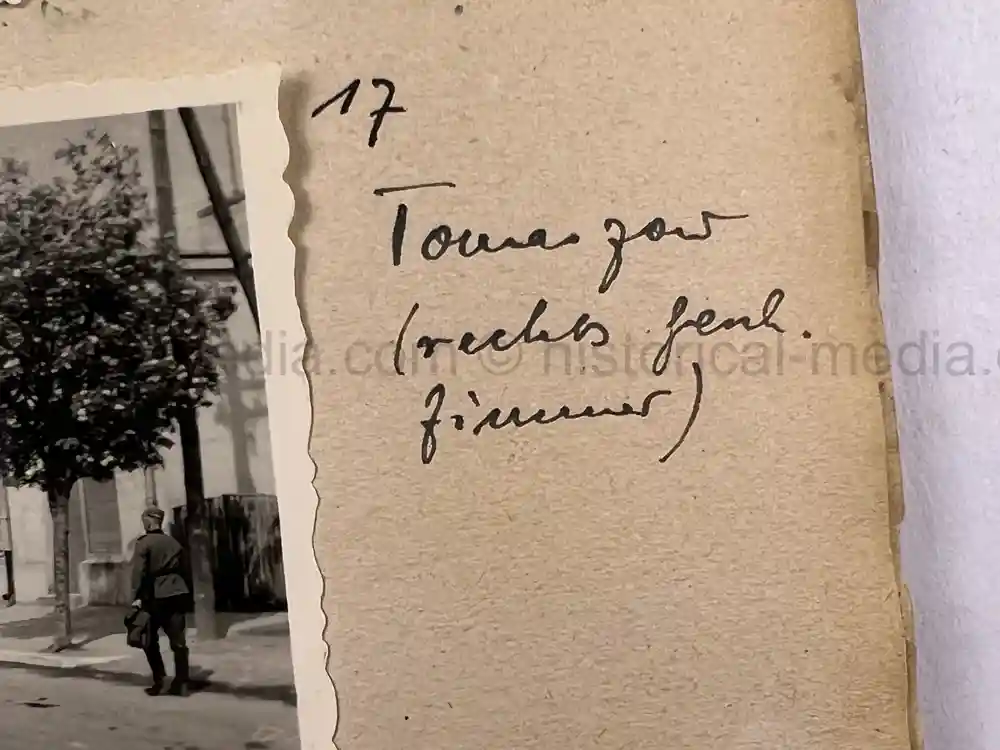 17
Tomaszow
(rechts Gesch.
zimmer)
media.com © historical-media.